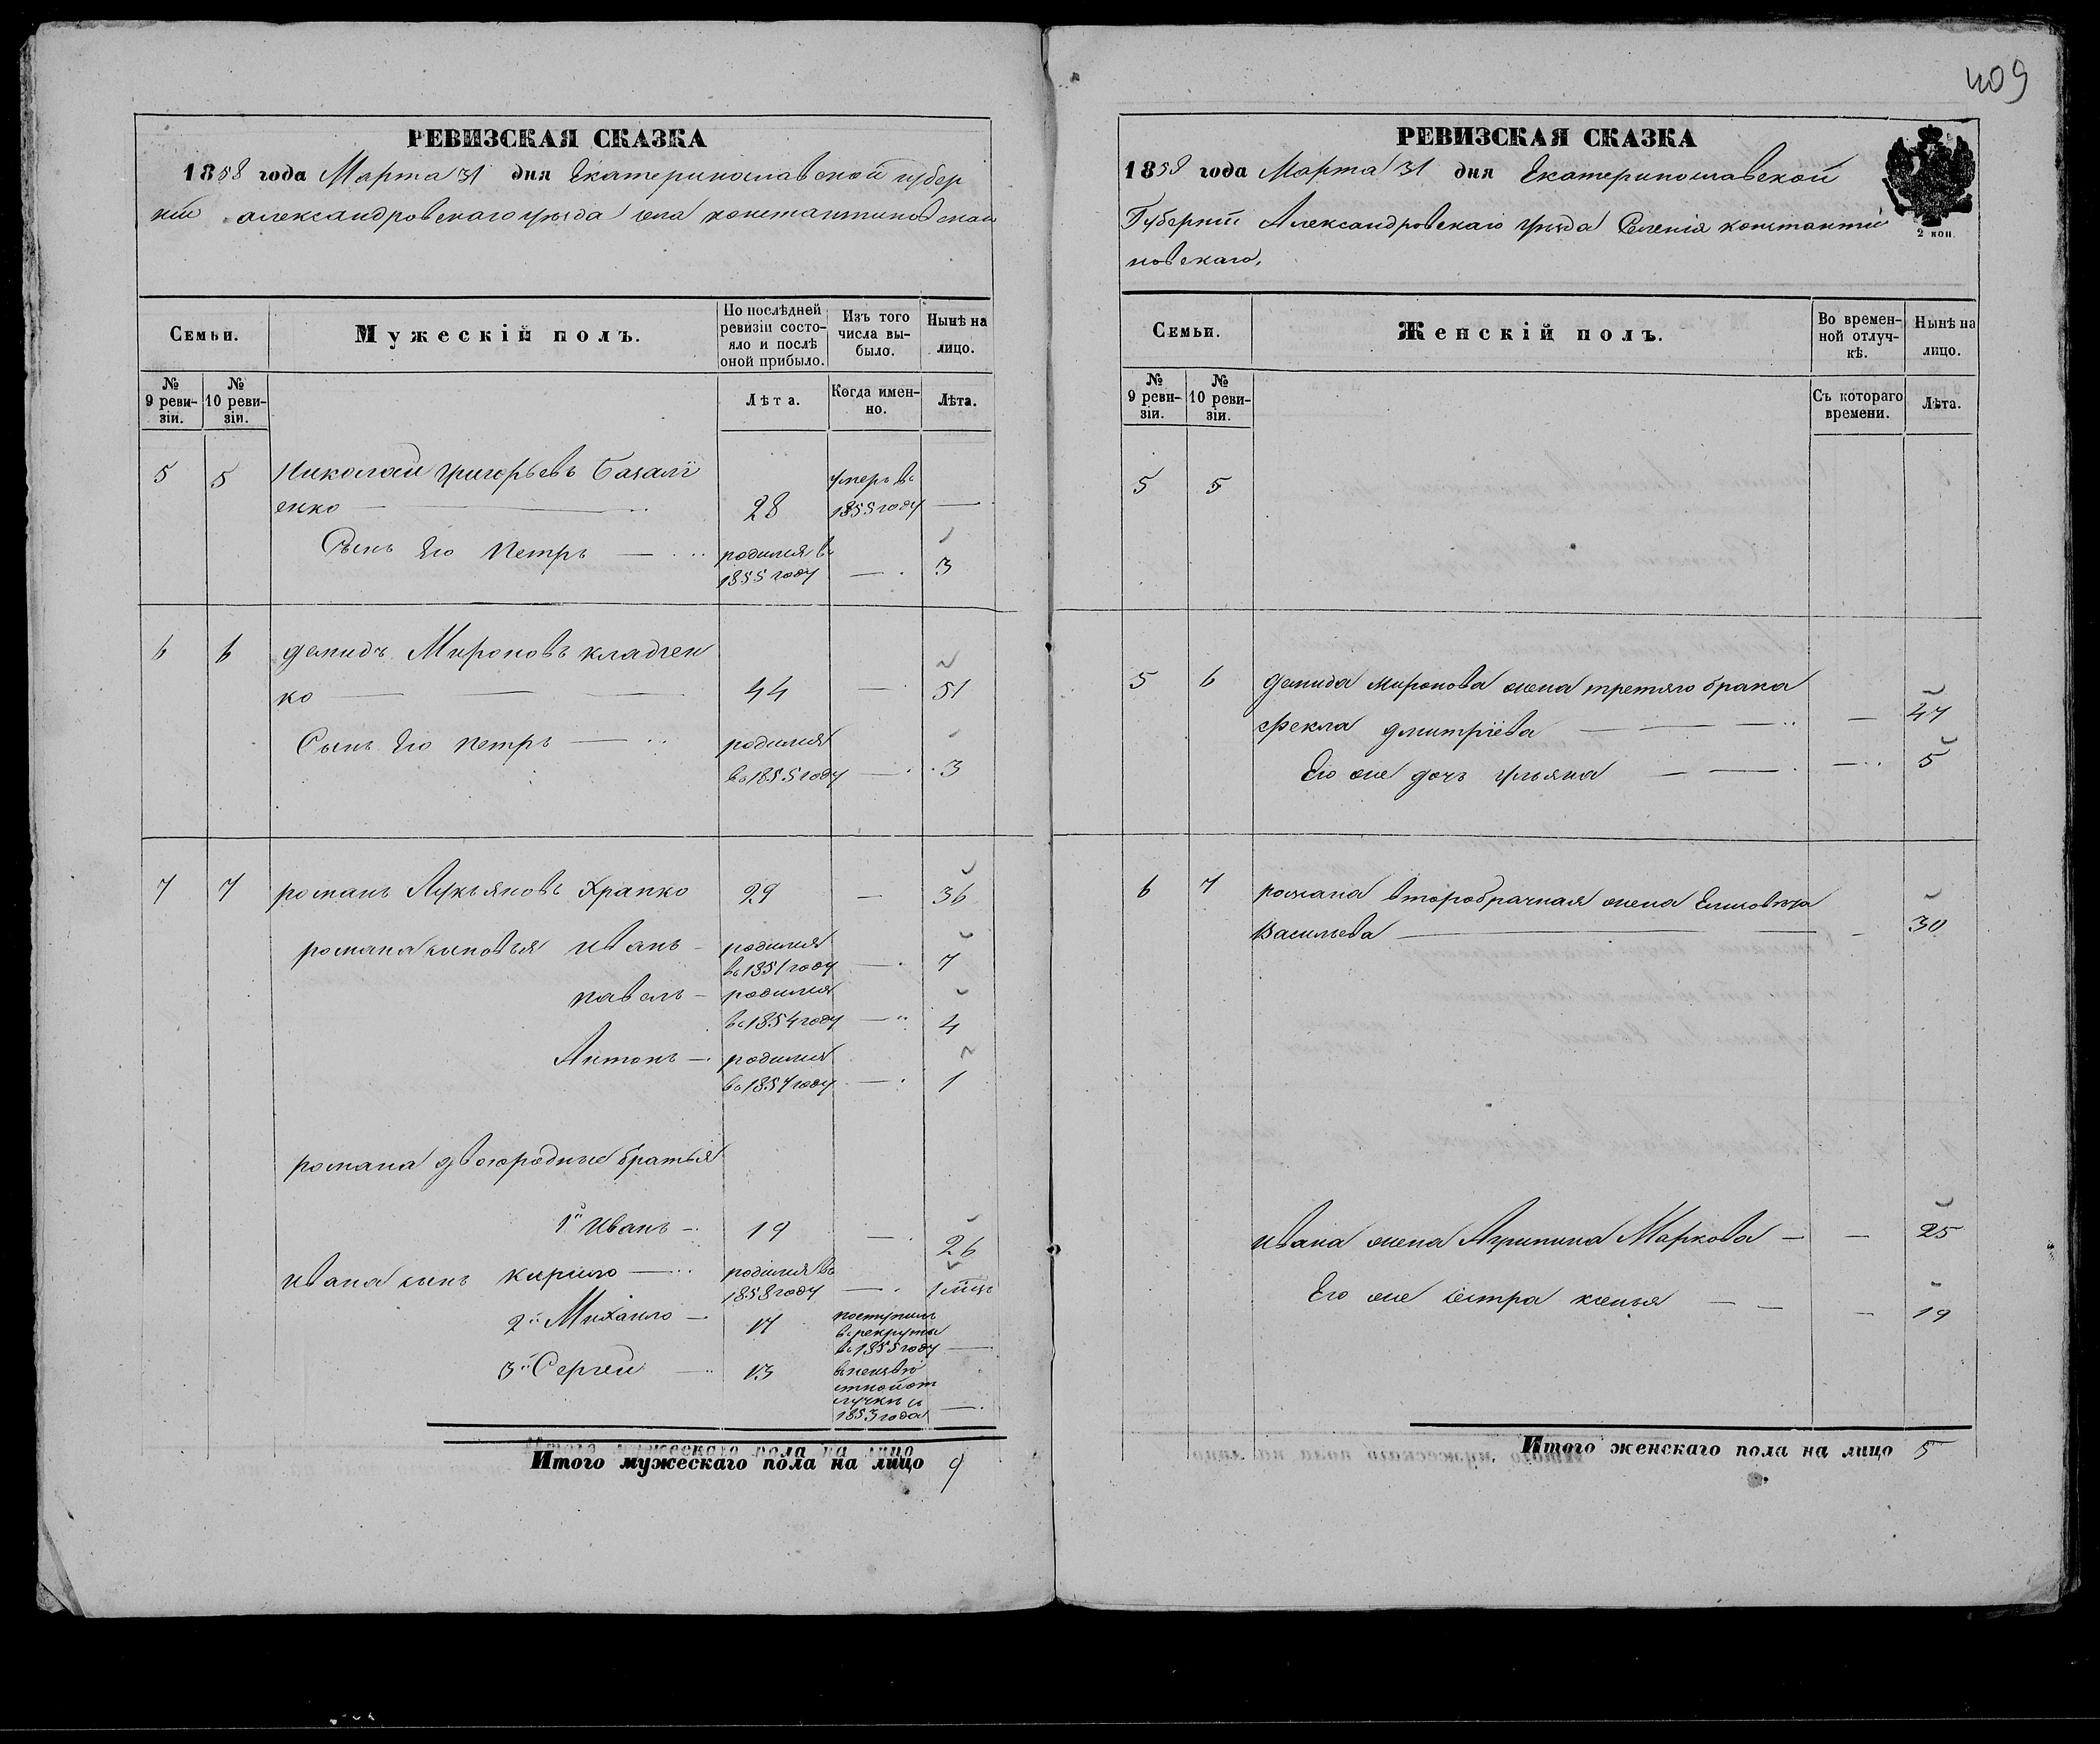 409
РЕВИЗСКАЯ СКАЗКА
1858 года Марта 31 дня Екатеринославской губер
нiи александровскаго уѣзда села константиновскаго
Семьи.
Мужескiй полъ.
По послѣдней ревизiи состояло и послѣ оной прибыло.
Изъ того числа выбыло.
Нынѣ на лицо.
№ 9 ревизiи.
№ 10 ревизiи.
Лѣта.
Когда именно.
Лѣта.
5 5 Николай григорьевъ
енко — 28 умеръ въ 1855 году —
Сынъ Его Петръ — родился въ 1855 году — 3
6 6 демидъ Мироновъ кладчен
ко — 44 — 51
Сынъ Его Петръ — родился въ 1855 году — 3
7 7 романъ Лукьяновъ Храпко 29 — 36
романа сыновья иванъ — родился въ 1851 году — 7
павелъ — родился въ 1854 году — 4
Антонъ — родился въ 1857 году — 1
романа двоюродные братья
1й Иванъ — 19 — 26
ивана сынъ кирило — родился въ 1858 году — 1 мѣсц
2й Михаило — 17 поступилъ въ рекруты въ 1855 году —
3й Сергей — 13 въ неизвѣстной отлучкѣ съ 1853 года —
Итого мужескаго пола на лицо 9
РЕВИЗСКАЯ СКАЗКА
1858 года Марта 31 дня Екатеринославской
Губернiи Александровскаго уѣзда Селенiя константи
новскаго.
2 коп.
Семьи.
Женскiй полъ.
Во временной отлучкѣ.
Нынѣ на лицо.
№ 9 ревизiи.
№ 10 ревизiи.
Съ котораго времени.
Лѣта.
5 5
5 6 демида миронова жена третяго брака
Фекла дмитрiева — — 47
Его же дочь ульяна — — 5
6 7 романа второбрачная жена Елисовета
Васильева — — 30
ивана жена Агрипина Маркова — — 25
Его же сестра ксенья — — 19
Итого женскаго пола на лицо 5